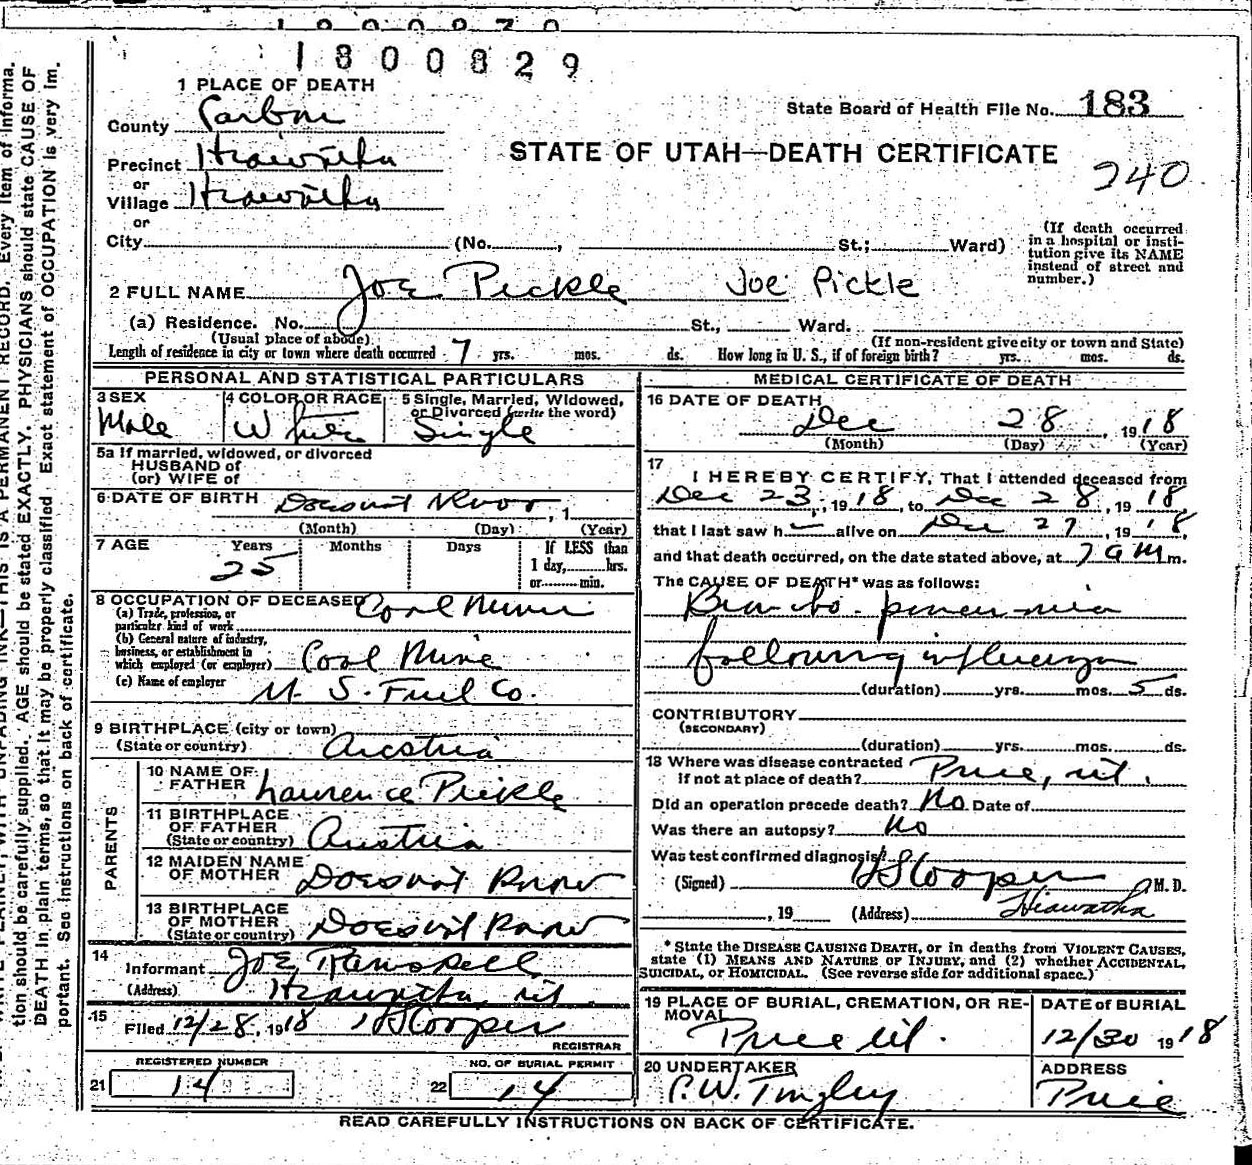 1800829
1 PLACE OF DEATH
State Board of Health File No. 183
County Carbon
STATE OF UTAH—DEATH CERTIFICATE
240
Precinct Hiawatha
or
Village Hiawatha
or
City (No. , St.; Ward)
(If death occurred
in a hospital or insti-
tution give its NAME
instead of street and
number.)
2 FULL NAME Joe Pickle Joe Pickle
(a) Residence. No. St., Ward.
(Usual place of abode) (If non-resident give city or town and State)
Length of residence in city or town where death occurred 7 yrs. mos. ds. How long in U. S., if of foreign birth? yrs. mos. ds.
PERSONAL AND STATISTICAL PARTICULARS
3 SEX
Male
4 COLOR OR RACE
White
5 Single, Married, Widowed,
or Divorced (write the word)
Single
5a If married, widowed, or divorced
HUSBAND of
(or) WIFE of
6 DATE OF BIRTH Doesnot Know , 1
(Month) (Day) (Year)
7 AGE Years Months Days If LESS than
25 1 day, hrs.
or min.
8 OCCUPATION OF DECEASED Coal Miner
(a) Trade, profession, or
particular kind of work
(b) General nature of industry,
business, or establishment in
which employed (or employer) Coal Mine
(c) Name of employer U. S. Fuel Co.
9 BIRTHPLACE (city or town)
(State or country) Austria
PARENTS
10 NAME OF
FATHER Laurence Pickle
11 BIRTHPLACE
OF FATHER
(State or country) Austria
12 MAIDEN NAME
OF MOTHER Doesnot Know
13 BIRTHPLACE
OF MOTHER
(State or country) Doesnot Know
14
Informant Joe
(Address) Hiawatha, Ut
15
Filed 12/28, 1918 Cooper
REGISTRAR
REGISTERED NUMBER
21 14
NO. OF BURIAL PERMIT
22 14
MEDICAL CERTIFICATE OF DEATH
16 DATE OF DEATH
Dec 28, 1918
(Month) (Day) (Year)
17
I HEREBY CERTIFY, That I attended deceased from
Dec 23, 1918, to Dec 28, 1918
that I last saw h alive on Dec 27, 1918,
and that death occurred, on the date stated above, at 7 a M m.
The CAUSE OF DEATH* was as follows:
Broncho-pneumonia
following influenza
(duration) yrs. mos. 5 ds.
CONTRIBUTORY
(SECONDARY)
(duration) yrs. mos. ds.
18 Where was disease contracted
if not at place of death? Price, Ut.
Did an operation precede death? No Date of
Was there an autopsy? No
Was test confirmed diagnosis?
(Signed) Cooper M. D.
, 19 (Address) Hiawatha
* State the DISEASE CAUSING DEATH, or in deaths from VIOLENT CAUSES,
state (1) MEANS AND NATURE OF INJURY, and (2) whether ACCIDENTAL,
SUICIDAL, or HOMICIDAL. (See reverse side for additional space.)
19 PLACE OF BURIAL, CREMATION, OR RE-
MOVAL
Price Ut.
DATE of BURIAL
12/30 1918
20 UNDERTAKER
C. W. Tingley
ADDRESS
Price
READ CAREFULLY INSTRUCTIONS ON BACK OF CERTIFICATE.
THIS IS A PERMANENT RECORD. Every item of informa-
tion should be carefully supplied. AGE should be stated EXACTLY. PHYSICIANS should state CAUSE OF
DEATH in plain terms, so that it may be properly classified. Exact statement of OCCUPATION is very im-
portant. See instructions on back of certificate.